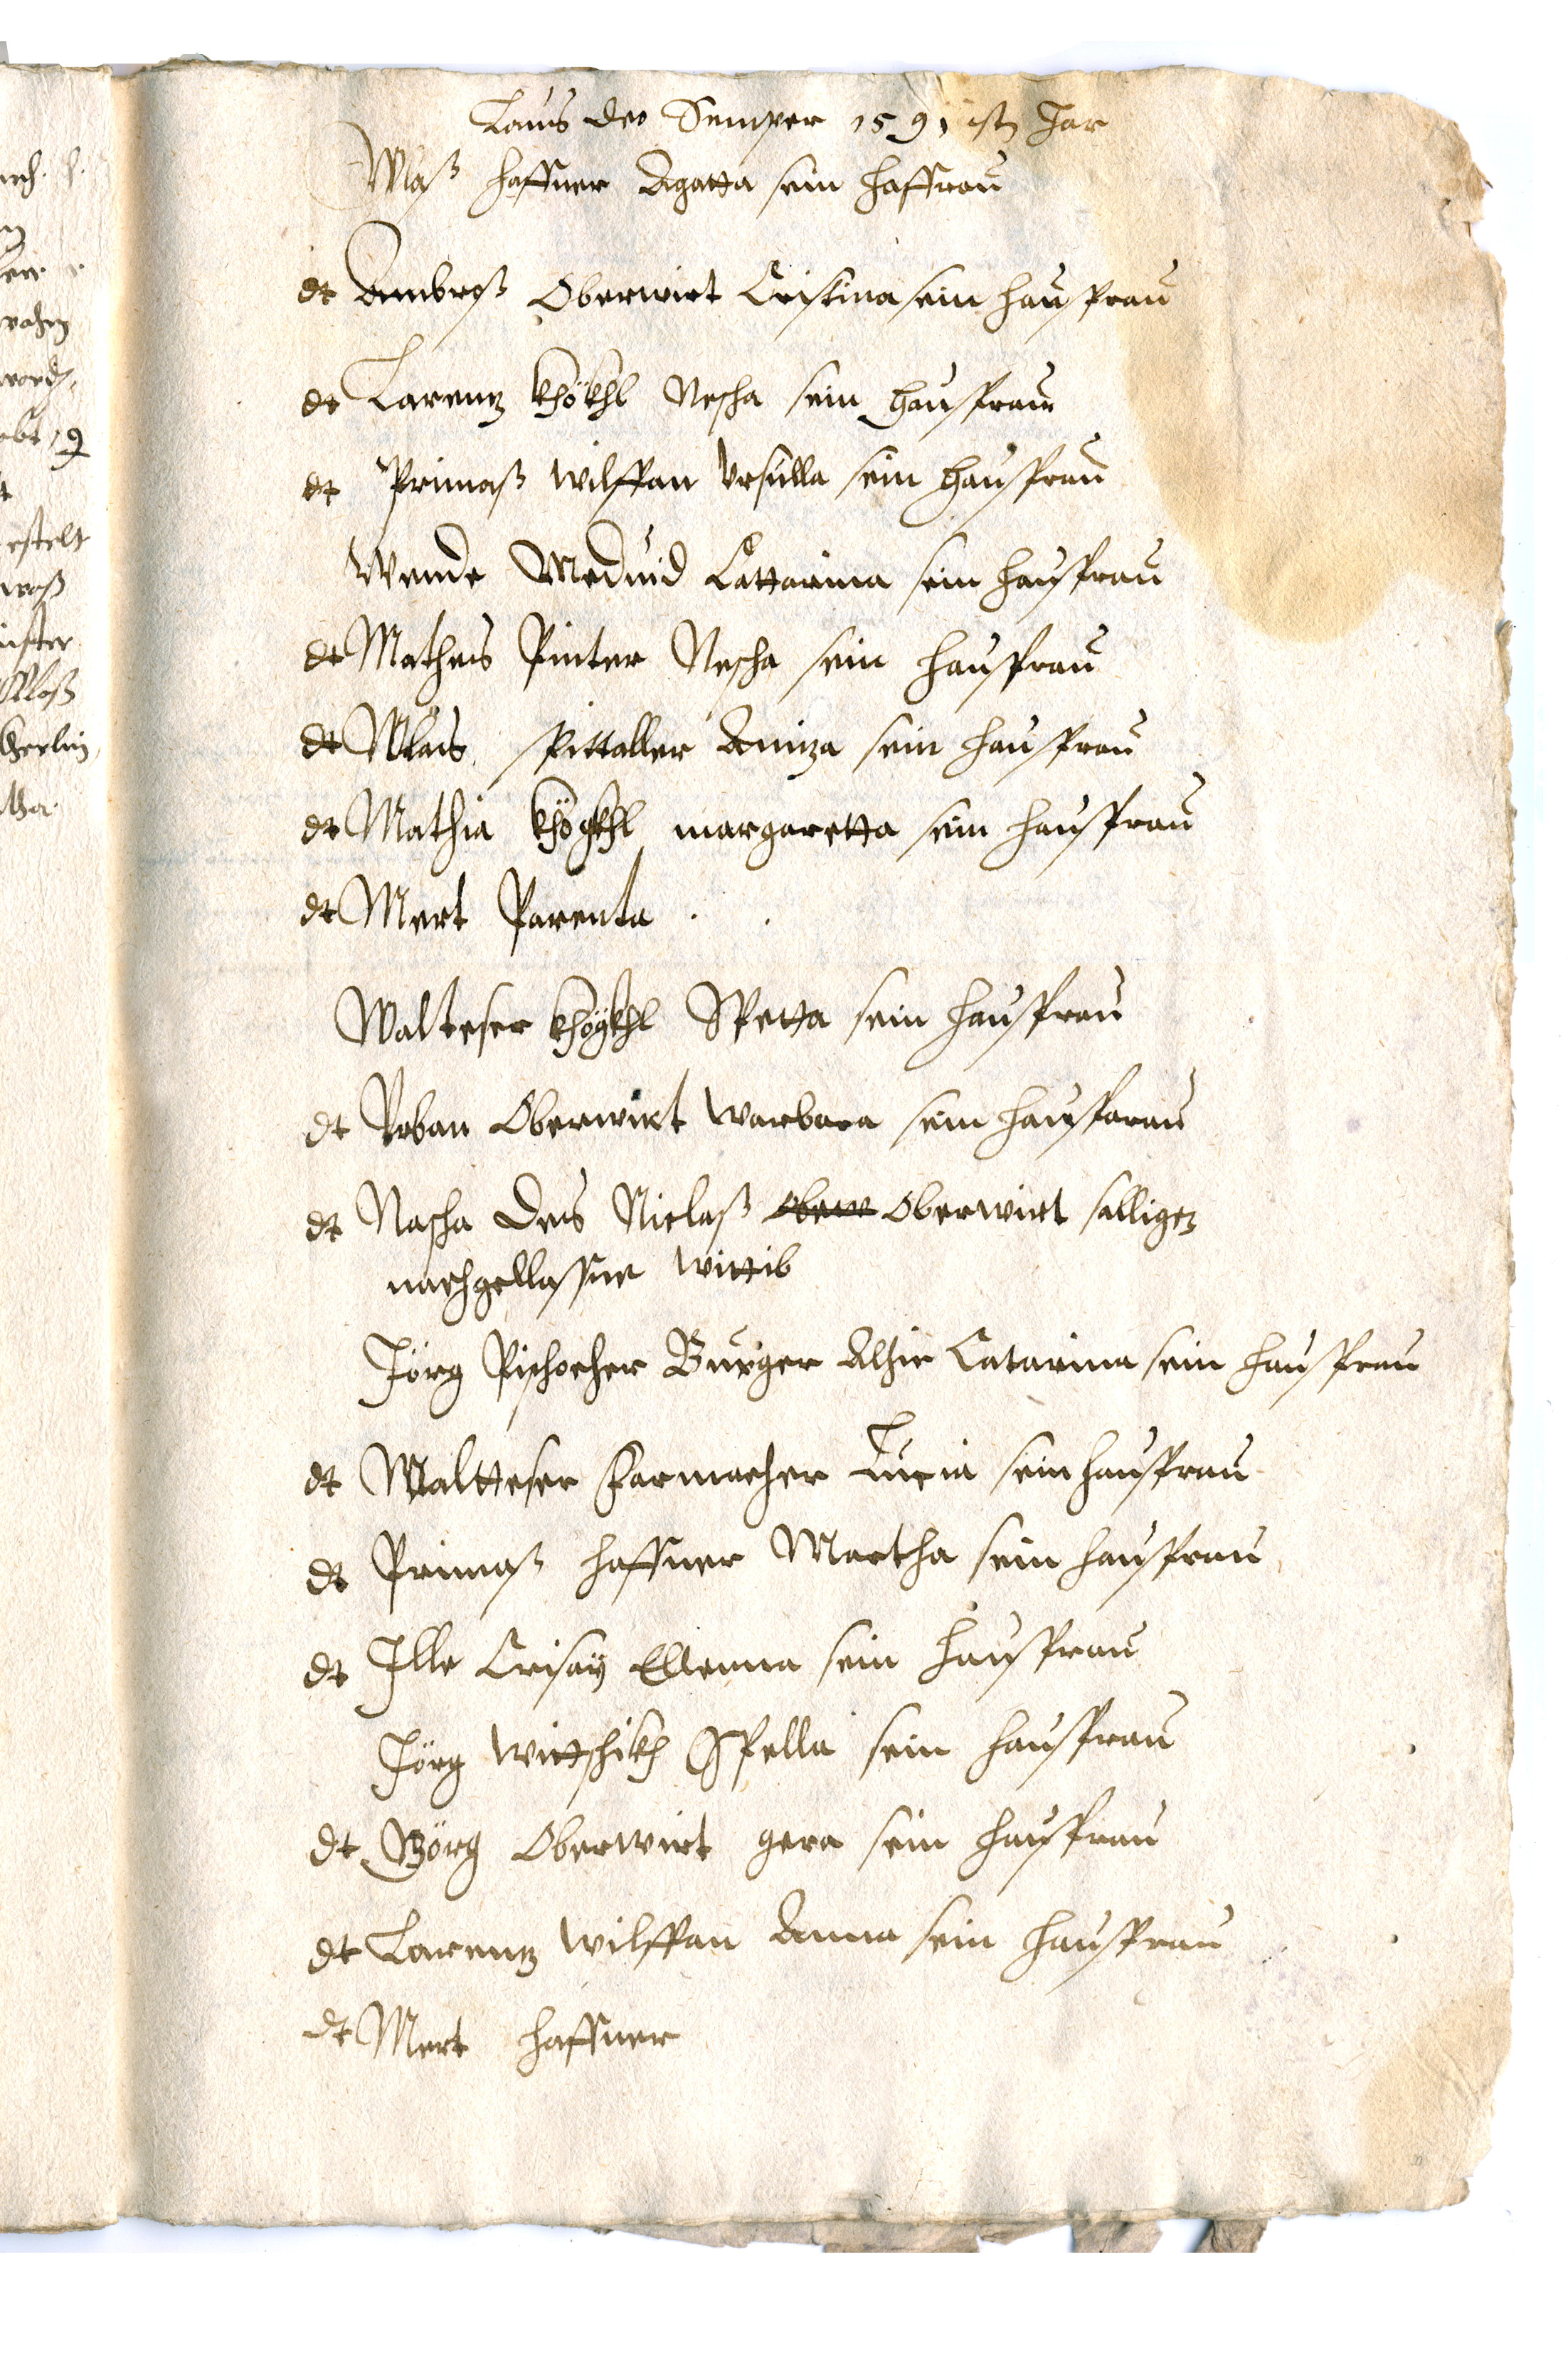 Laus deo Semper 1591 istn Jar
Wlaß Haffner Agatta sein Haffrau
dt Ambroß Oberwirt Cristina sein Hausfrau
dt Larentz Khökhl Nescha sein Hausfrau
dt Primaß Wilffan Ursulla sein Hausfrau
Wende Meduid Cattarina sein Hausfrau
dt Matheis Pinter Nescha sein Hausfrau
dt Spittaller Aniza sein Hausfrau
dt Mathia Khögkhl margaretta sein Hausfrau
dt Mert Parenta
Walteser Khögkhl Spetta sein Hausfrau
dt Urban Oberwirt Warbara sein Hausfarau
dt Nascha Des Niclaß Oberwirt salligen
nachgellassne Wittib
Jörg Pischocher Burger Alhie Catarina sein Hausfrau
dt Waltteser Farmacher Lucia sein Hausfrau
dt Primaß Haffner Martha sein Hausfrau
dt Ille Crisay Ellenna sein Hausfrau
Jörg Wuttschikh Spella sein Hausfrau
dt Görg Oberwirt gera sein Hausfrau
dt Larentz Wilffan Anna sein Hausfrau
dt Mert Haffner